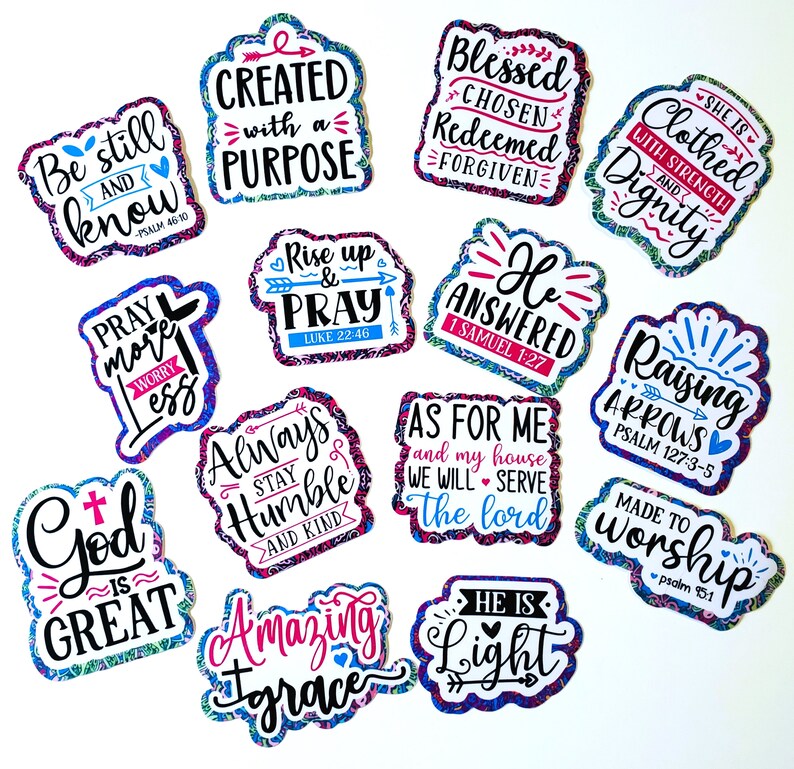 Be still
AND
know
-PSALM 46:10
CREATED
with a
PURPOSE
Blessed
CHOSEN
Redeemed
FORGIVEN
SHE IS
Clothed
WITH STRENGTH
AND
Dignity
PRAY
more
WORRY
Less
Rise up
&
PRAY
LUKE 22:46
He
ANSWERED
1 SAMUEL 1:27
Raising
ARROWS
PSALM 127:3-5
God
IS
GREAT
Always
STAY
Humble
AND KIND
AS FOR ME
and my house
WE WILL SERVE
The lord
MADE TO
worship
psalm 95:1
Amazing
grace
HE IS
Light